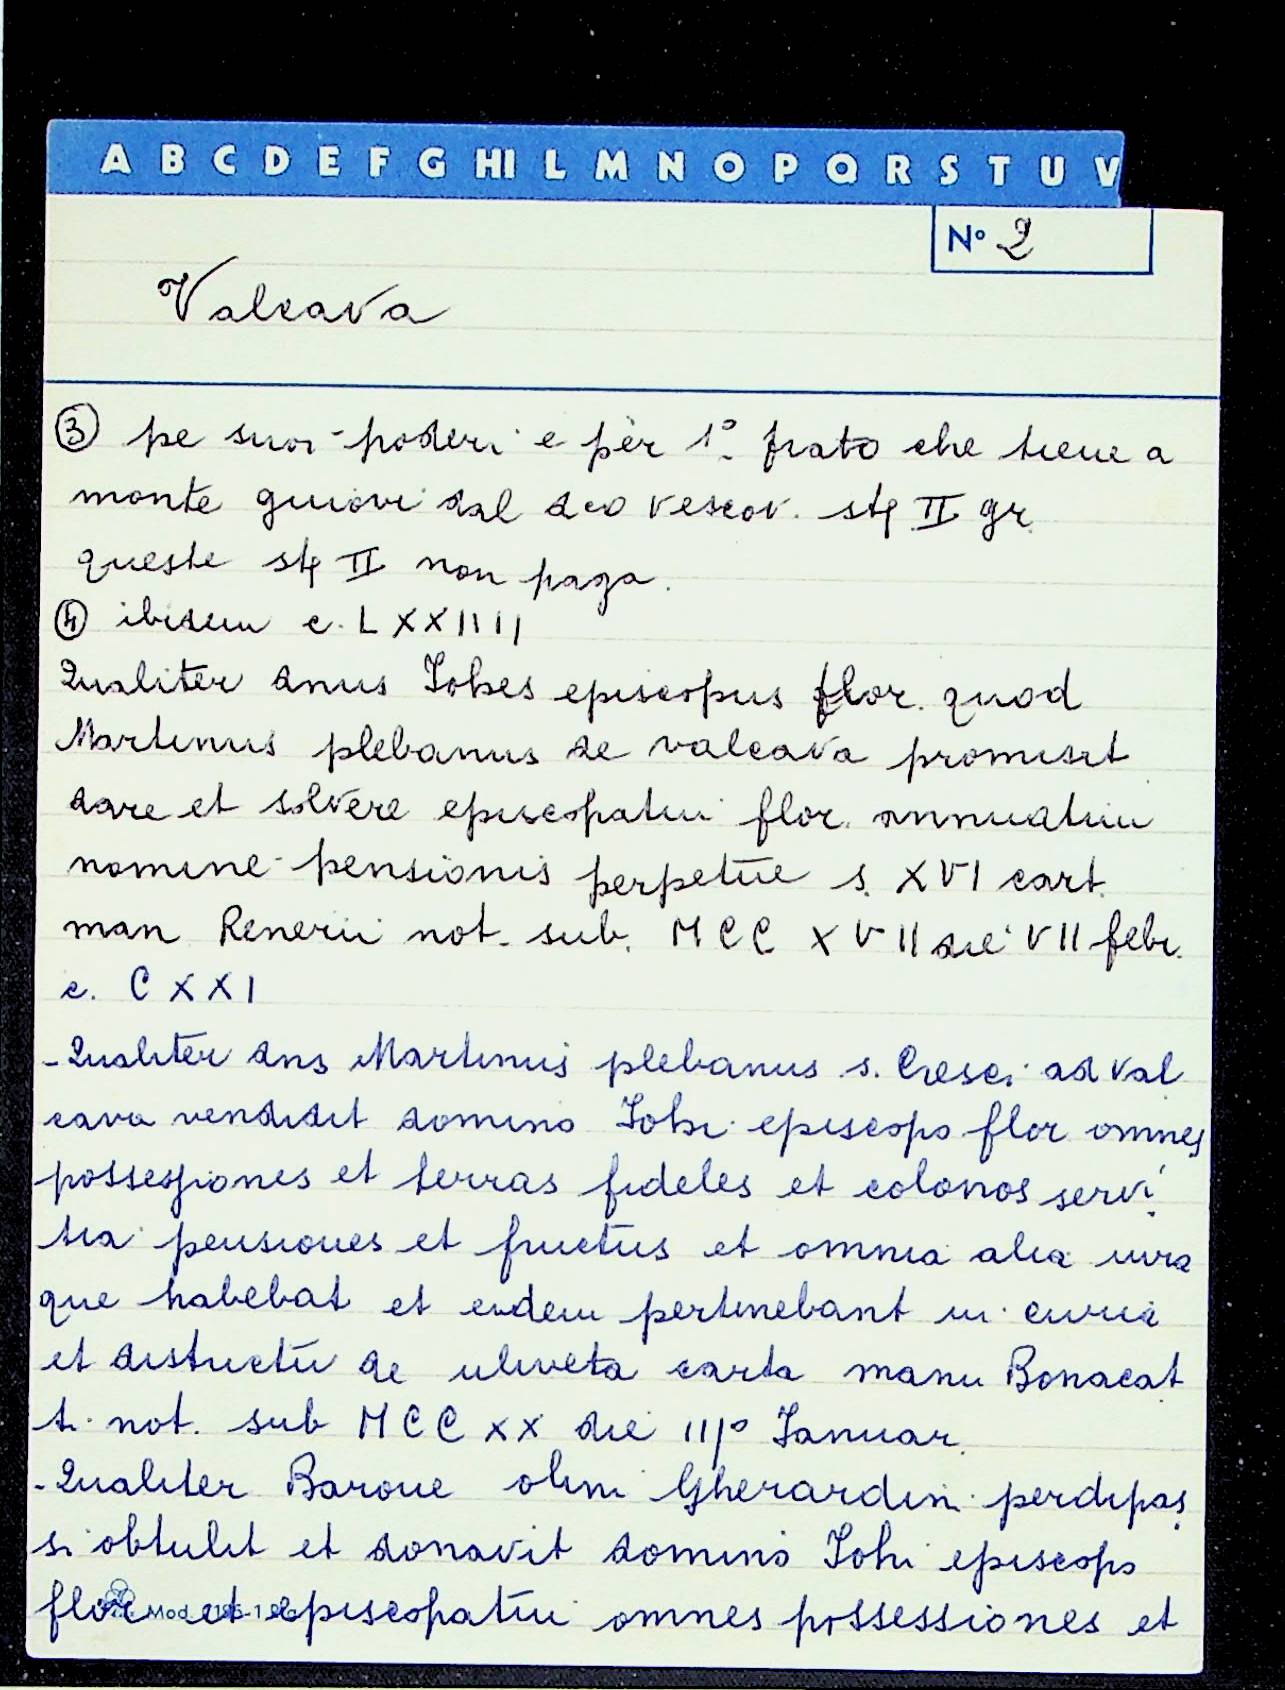 A B C D E F G HI L M N O P Q R S T U V
N° 2
Valcava
③ pe suoi poderi e per 1° frato che tiene a
monte guiovi dal dco vescov. stę II gr.
queste stę II non paga.
④ ibidem c. LXXIIII
Qualiter dnus Iohes episcopus flor. quod
Martinus plebanus de valcava promisit
dare et solvere episcopatui flor. annuatim
nomine pensionis perpetue s. XVI cart.
man Renerii not. sub. MCC XVII die VII febr.
c. CXXI
- Qualiter dns Martinus plebanus s. Cresci ad Val
cava vendidit domino Iohi episcopo flor omnes
possessiones et terras fideles et colonos servi
tia pensiones et fructus et omnia alia iura
que habebat et eidem pertinebant in curia
et districtu de uliveta carta manu Bonacat
ti not. sub MCC XX die III° Ianuar.
- Qualiter Barone olim Gherardini perdipas
si obtulit et donavit domino Iohi episcopo
flor et episcopatui omnes possessiones et
Mod.